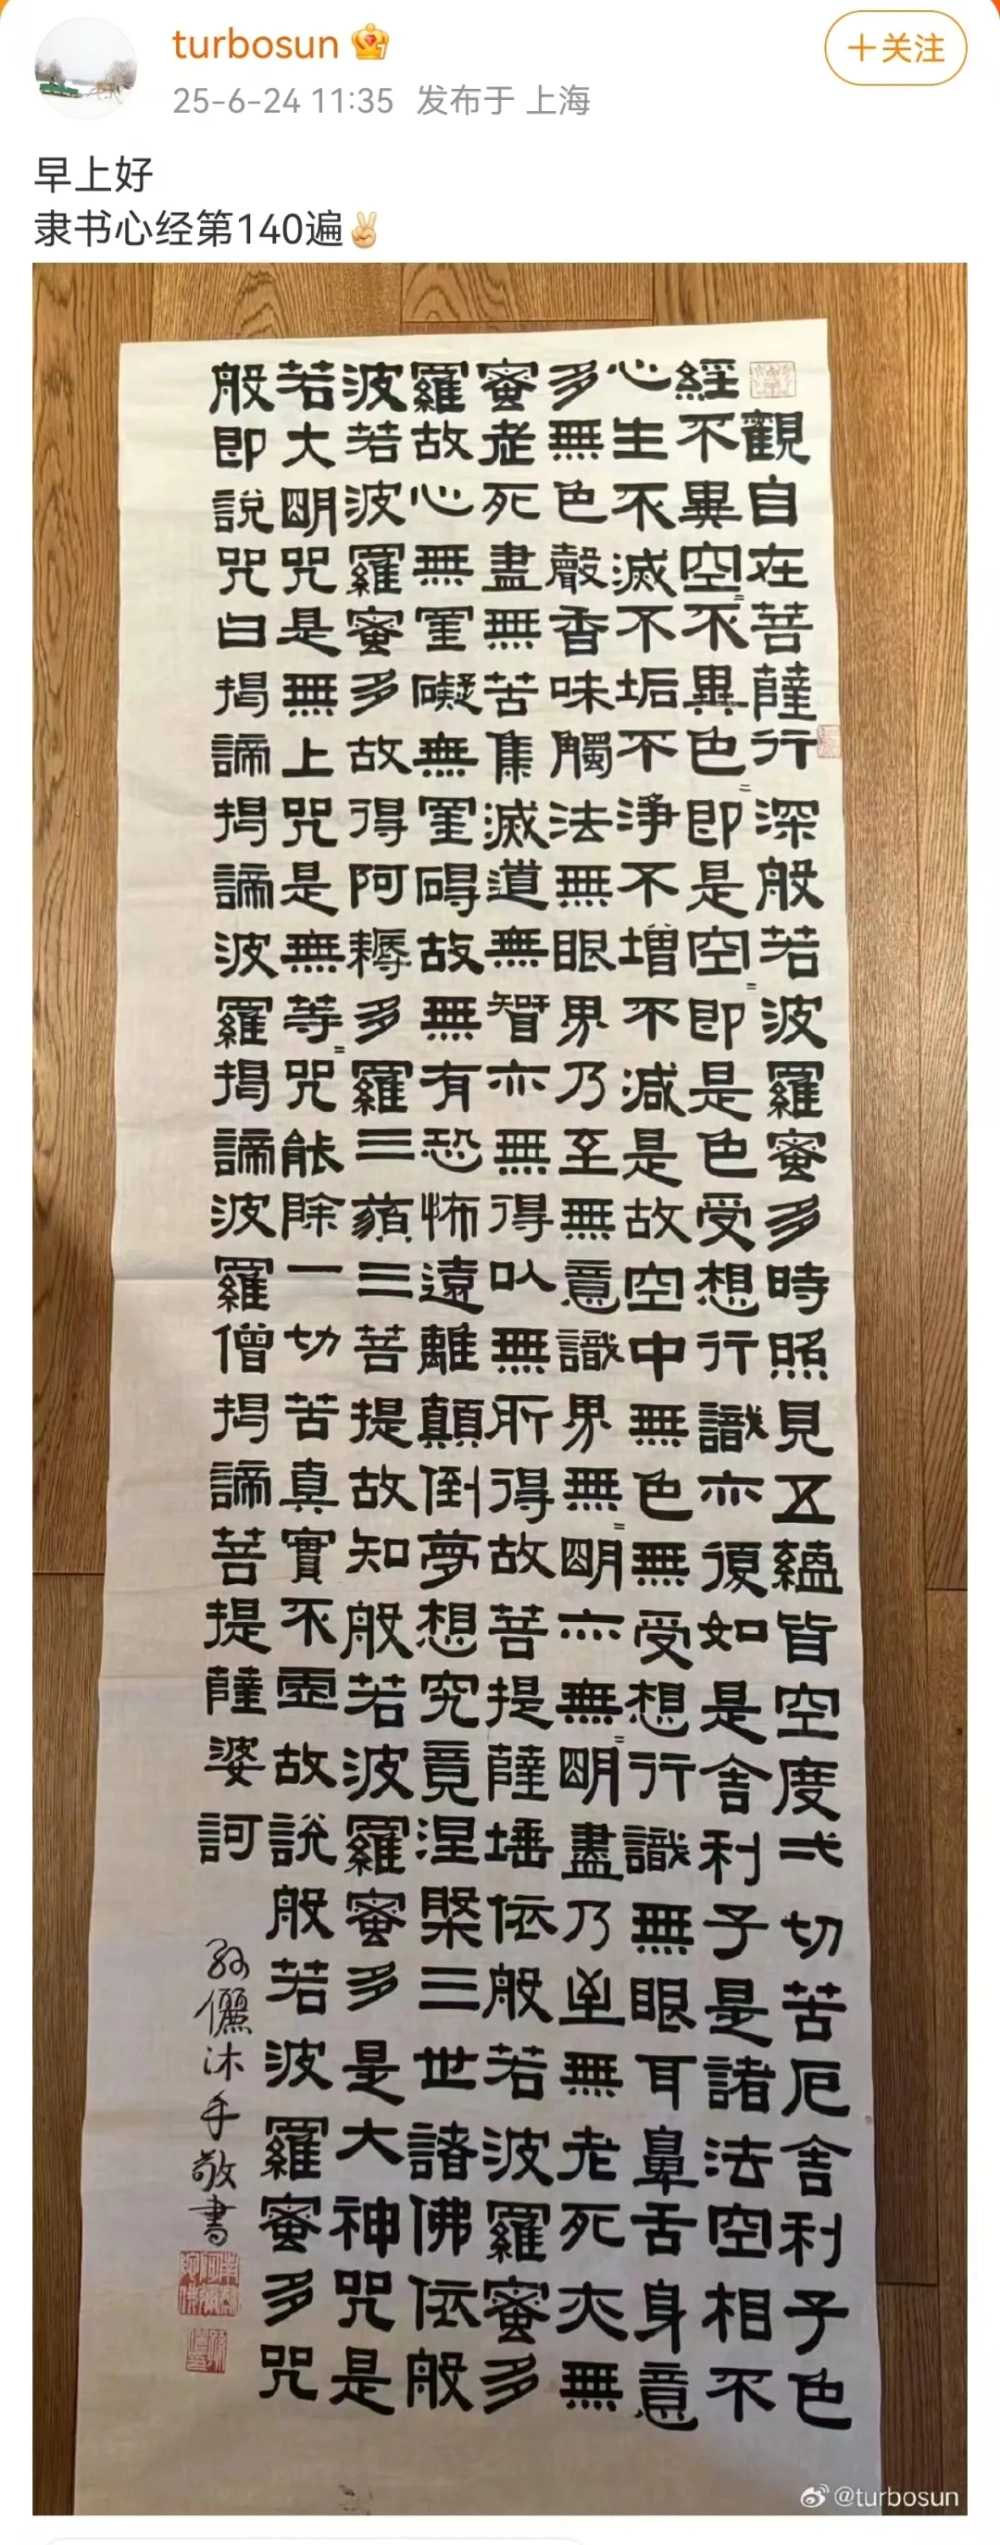 turbosun
25-6-24 11:35 发布于 上海
+关注
早上好
隶书心经第140遍✌🏻
般若波羅蜜多心經
觀自在菩薩行深般若波羅蜜多時照見五蘊皆空度弌切苦厄舍利子色
不異空〻不異色〻即是空〻即是色受想行識亦復如是舍利子是諸法空相不
生不滅不垢不淨不增不減是故空中無色無受想行識無眼耳鼻舌身意
無色聲香味觸法無眼界乃至無意識界無〻明亦無〻明盡乃至無老死亦無
老死盡無苦集滅道無智亦無得以無所得故菩提薩埵依般若波羅蜜多
故心無罣礙無罣碍故無有恐怖遠離顛倒夢想究竟涅槃三世諸佛依般
若波羅蜜多故得阿耨多羅三藐三菩提故知般若波羅蜜多是大神咒是
大明咒是無上咒是無等〻咒能除一切苦真實不虛故說般若波羅蜜多咒
即說咒曰揭諦揭諦波羅揭諦波羅僧揭諦菩提薩婆訶
孫儷沐手敬書
@turbosun